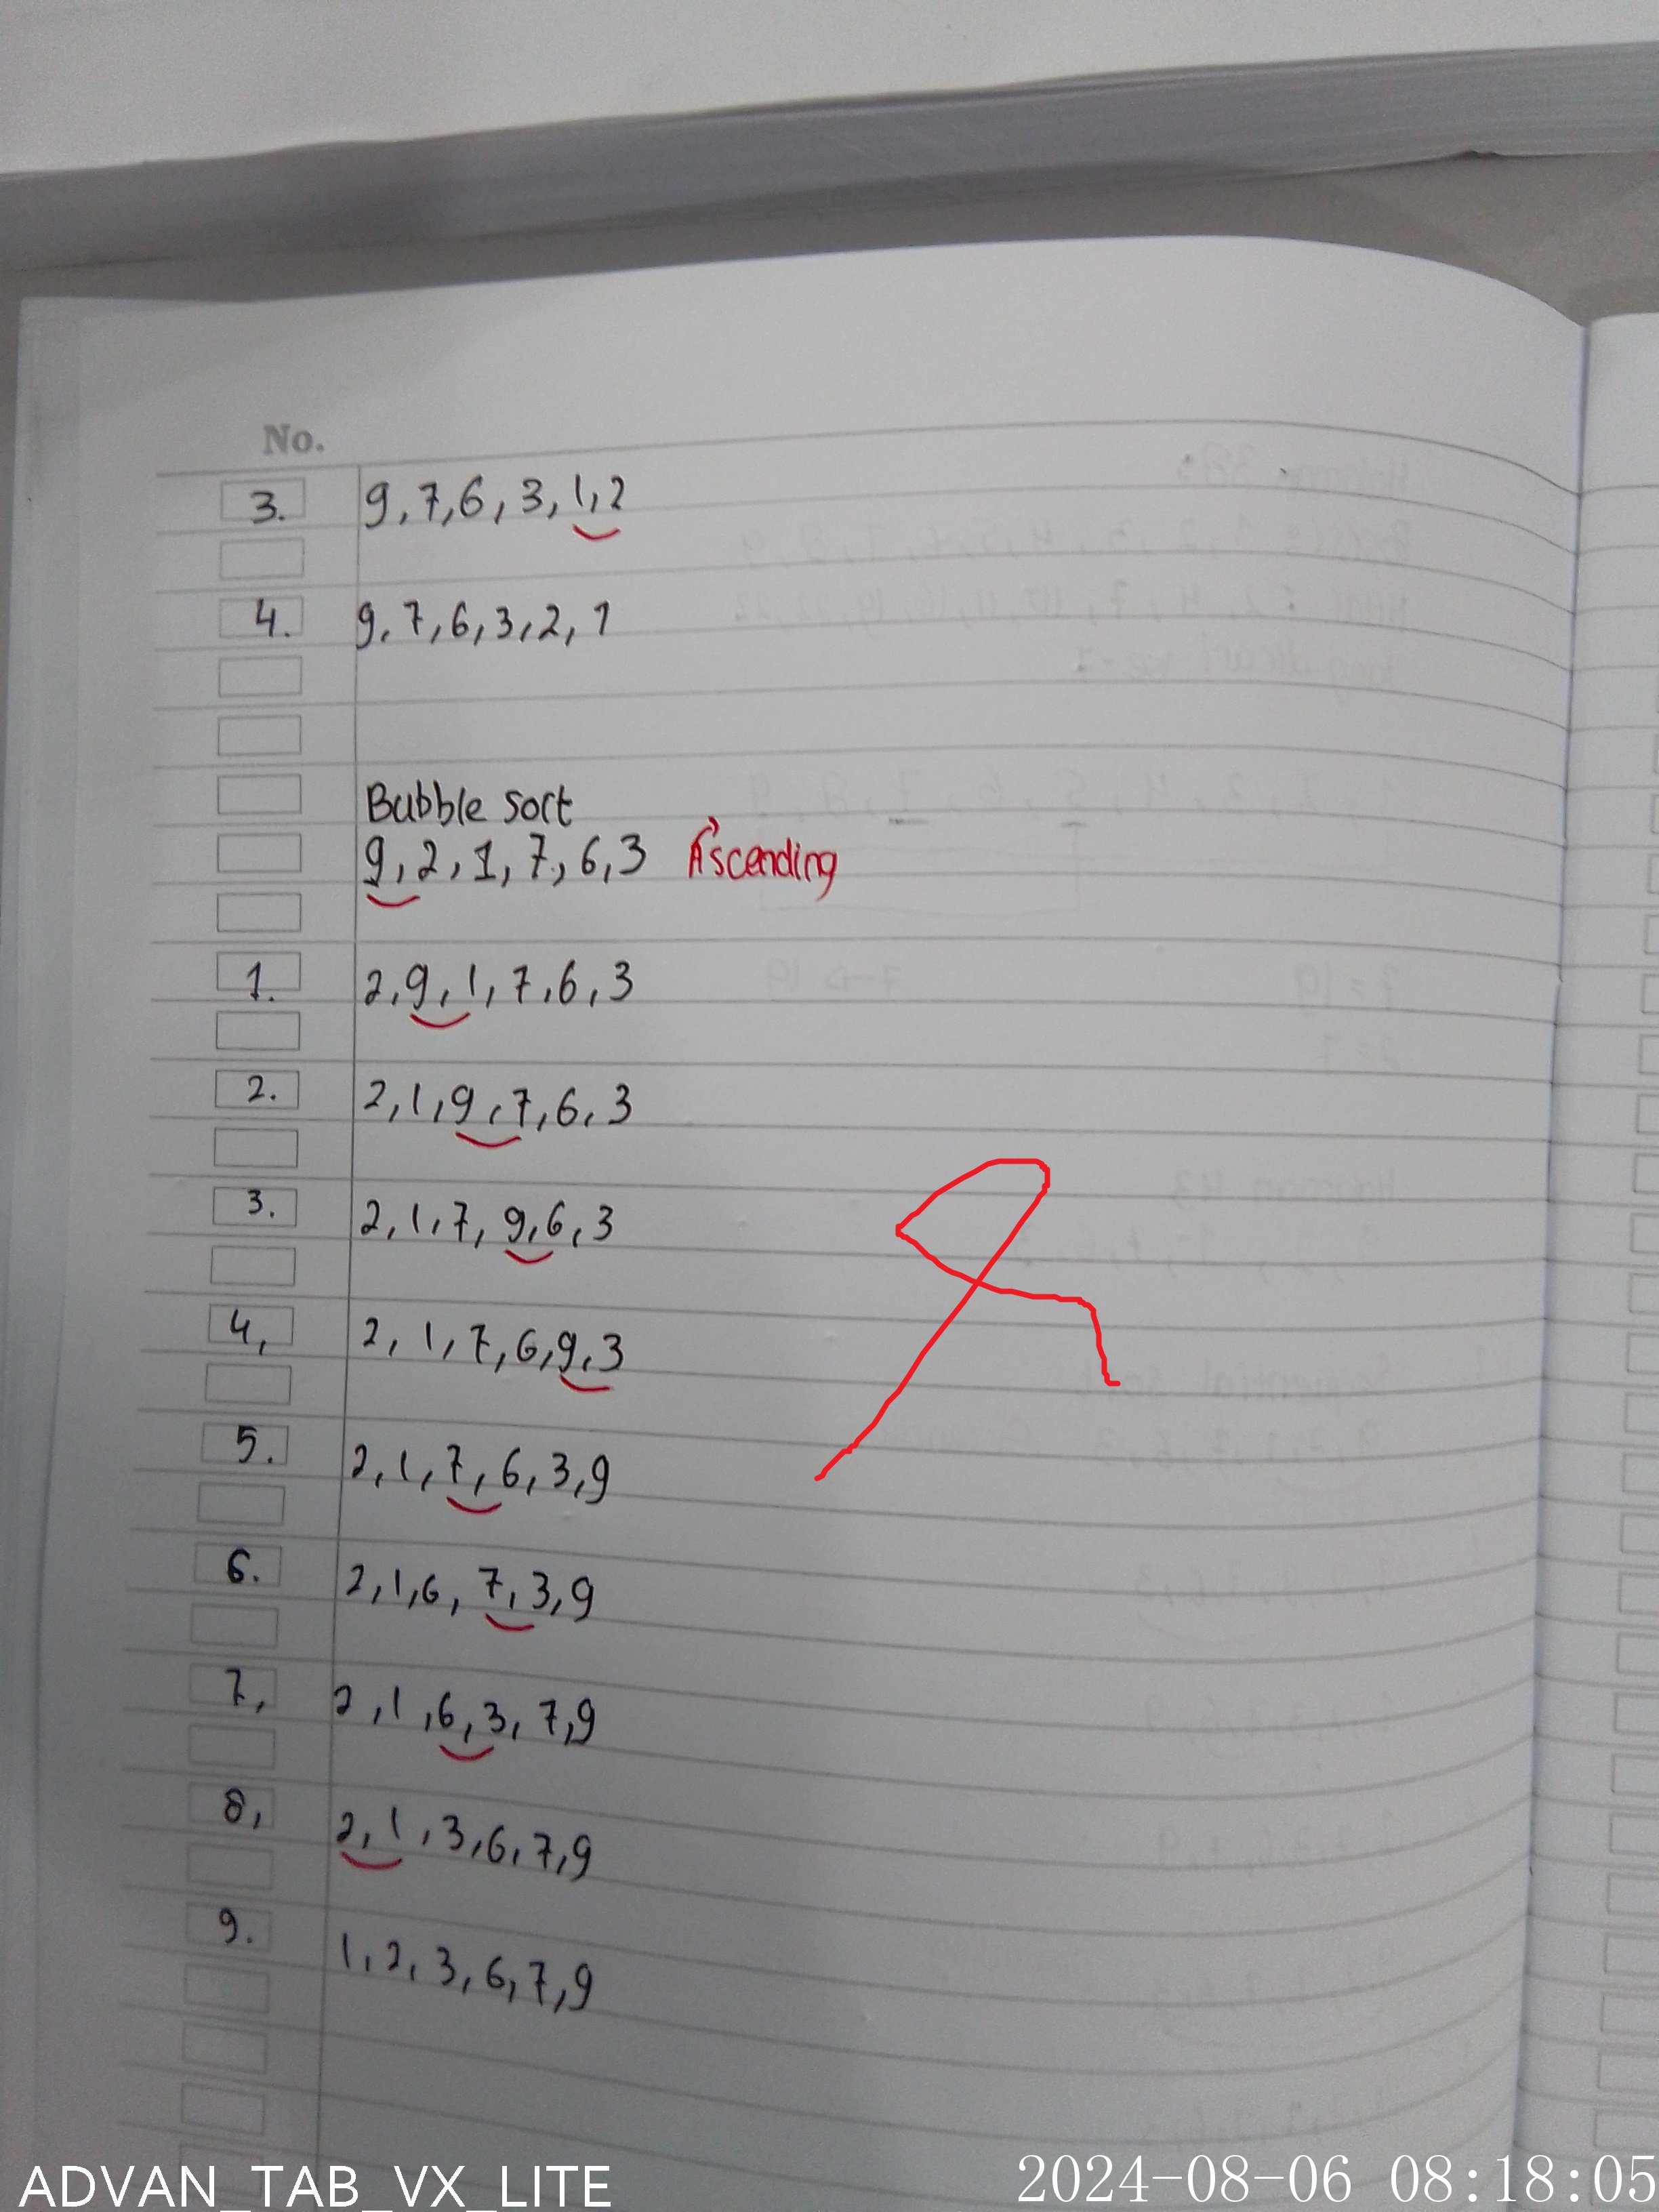 No.
3. 9,7,6,3,1,2
4. 9,7,6,3,2,1
Bubble sort
9,2,1,7,6,3 Ascending
1. 2,9,1,7,6,3
2. 2,1,9,7,6,3
3. 2,1,7,9,6,3
4, 2,1,7,6,9,3
5. 2,1,7,6,3,9
6. 2,1,6,7,3,9
7, 2,1,6,3,7,9
8, 2,1,3,6,7,9
9. 1,2,3,6,7,9
ADVAN_TAB_VX_LITE 2024-08-06 08:18:05